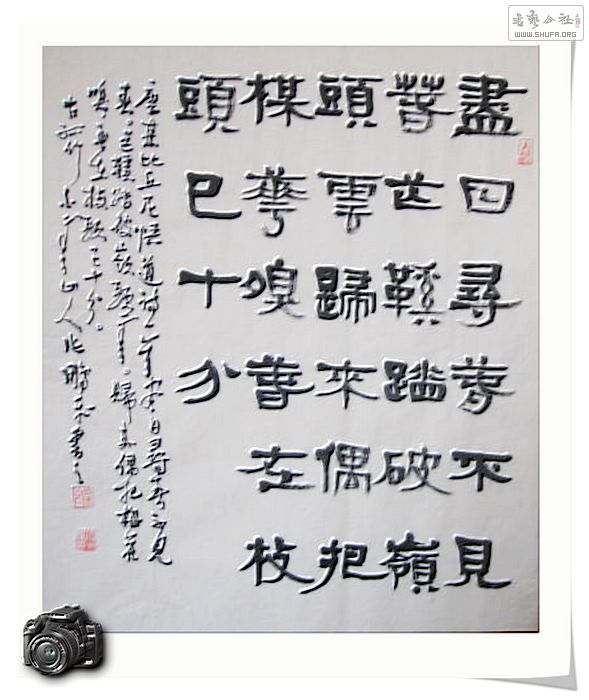 盡日尋春不見
春芒鞵踏破嶺
頭雲歸來偶把
楳華嗅春在枝
頭已十分
唐某比丘尼悟道詩一首盡日尋春不見
春芒鞵踏破嶺頭雲歸來偶把梅花
嗅春在枝頭已十分
山人
书艺公社
WWW.SHUFA.ORG